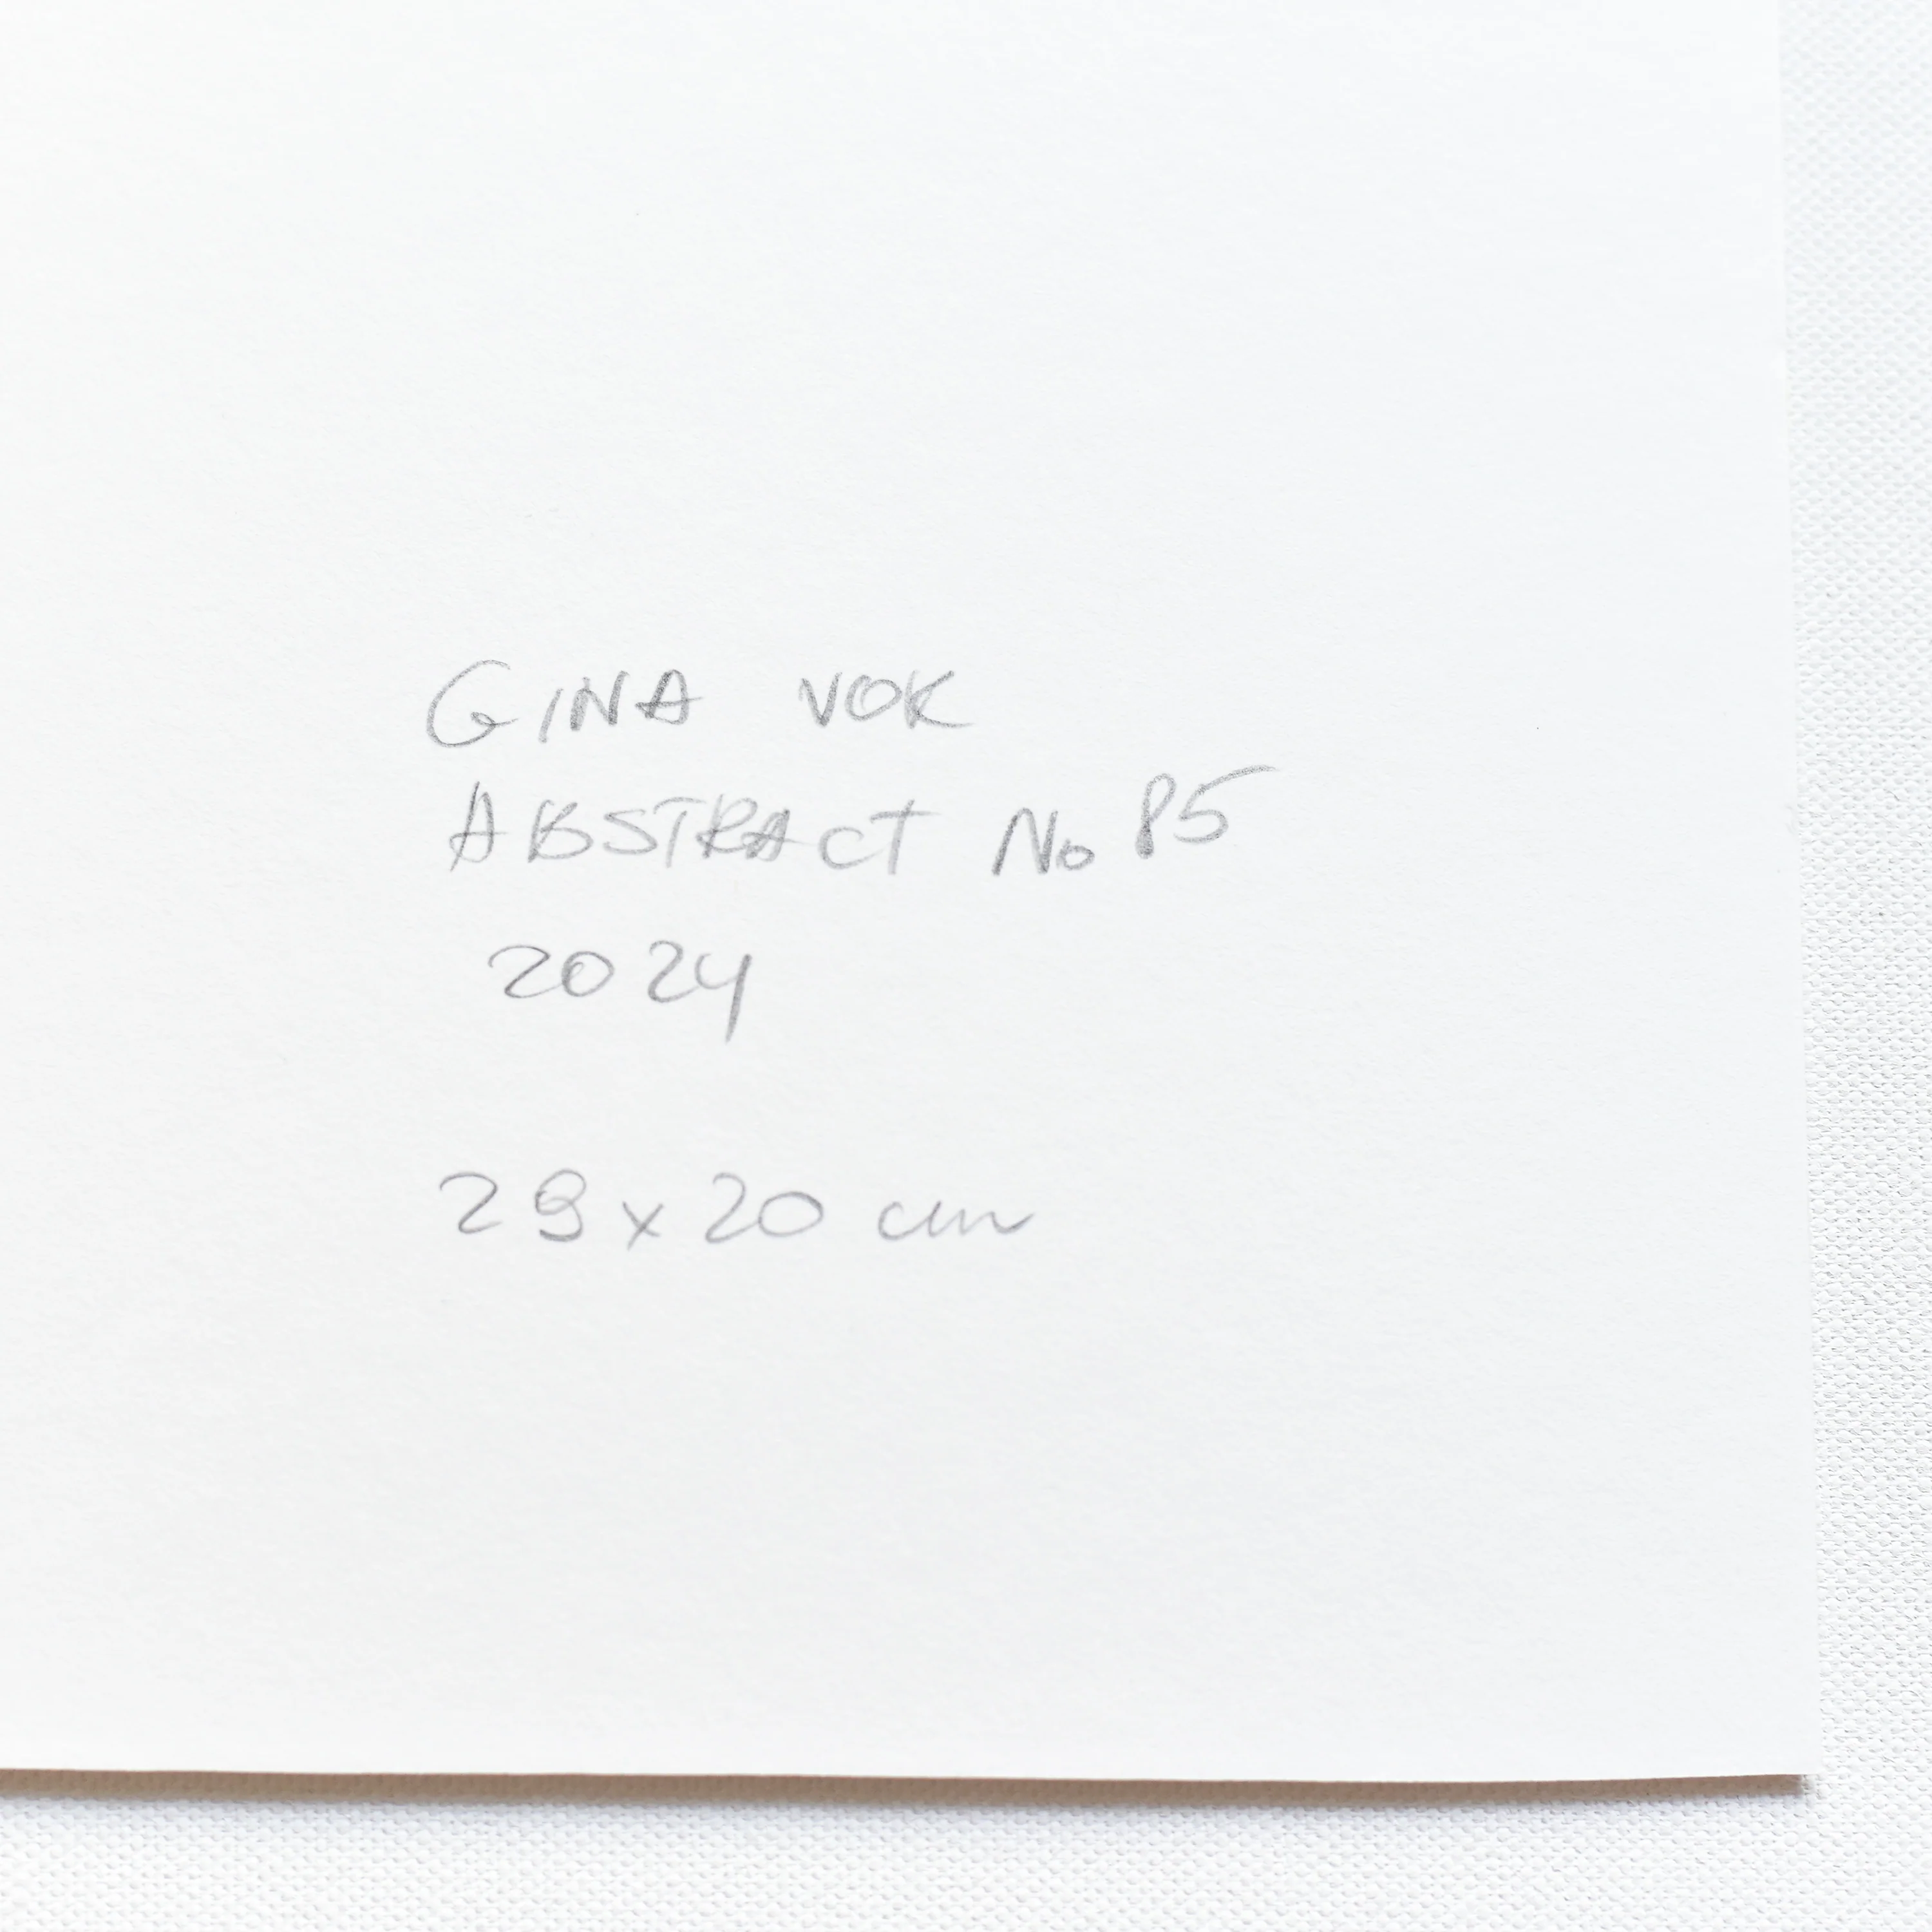 GINA VOK
ABSTRACT No 85
2024
29 x 20 cm